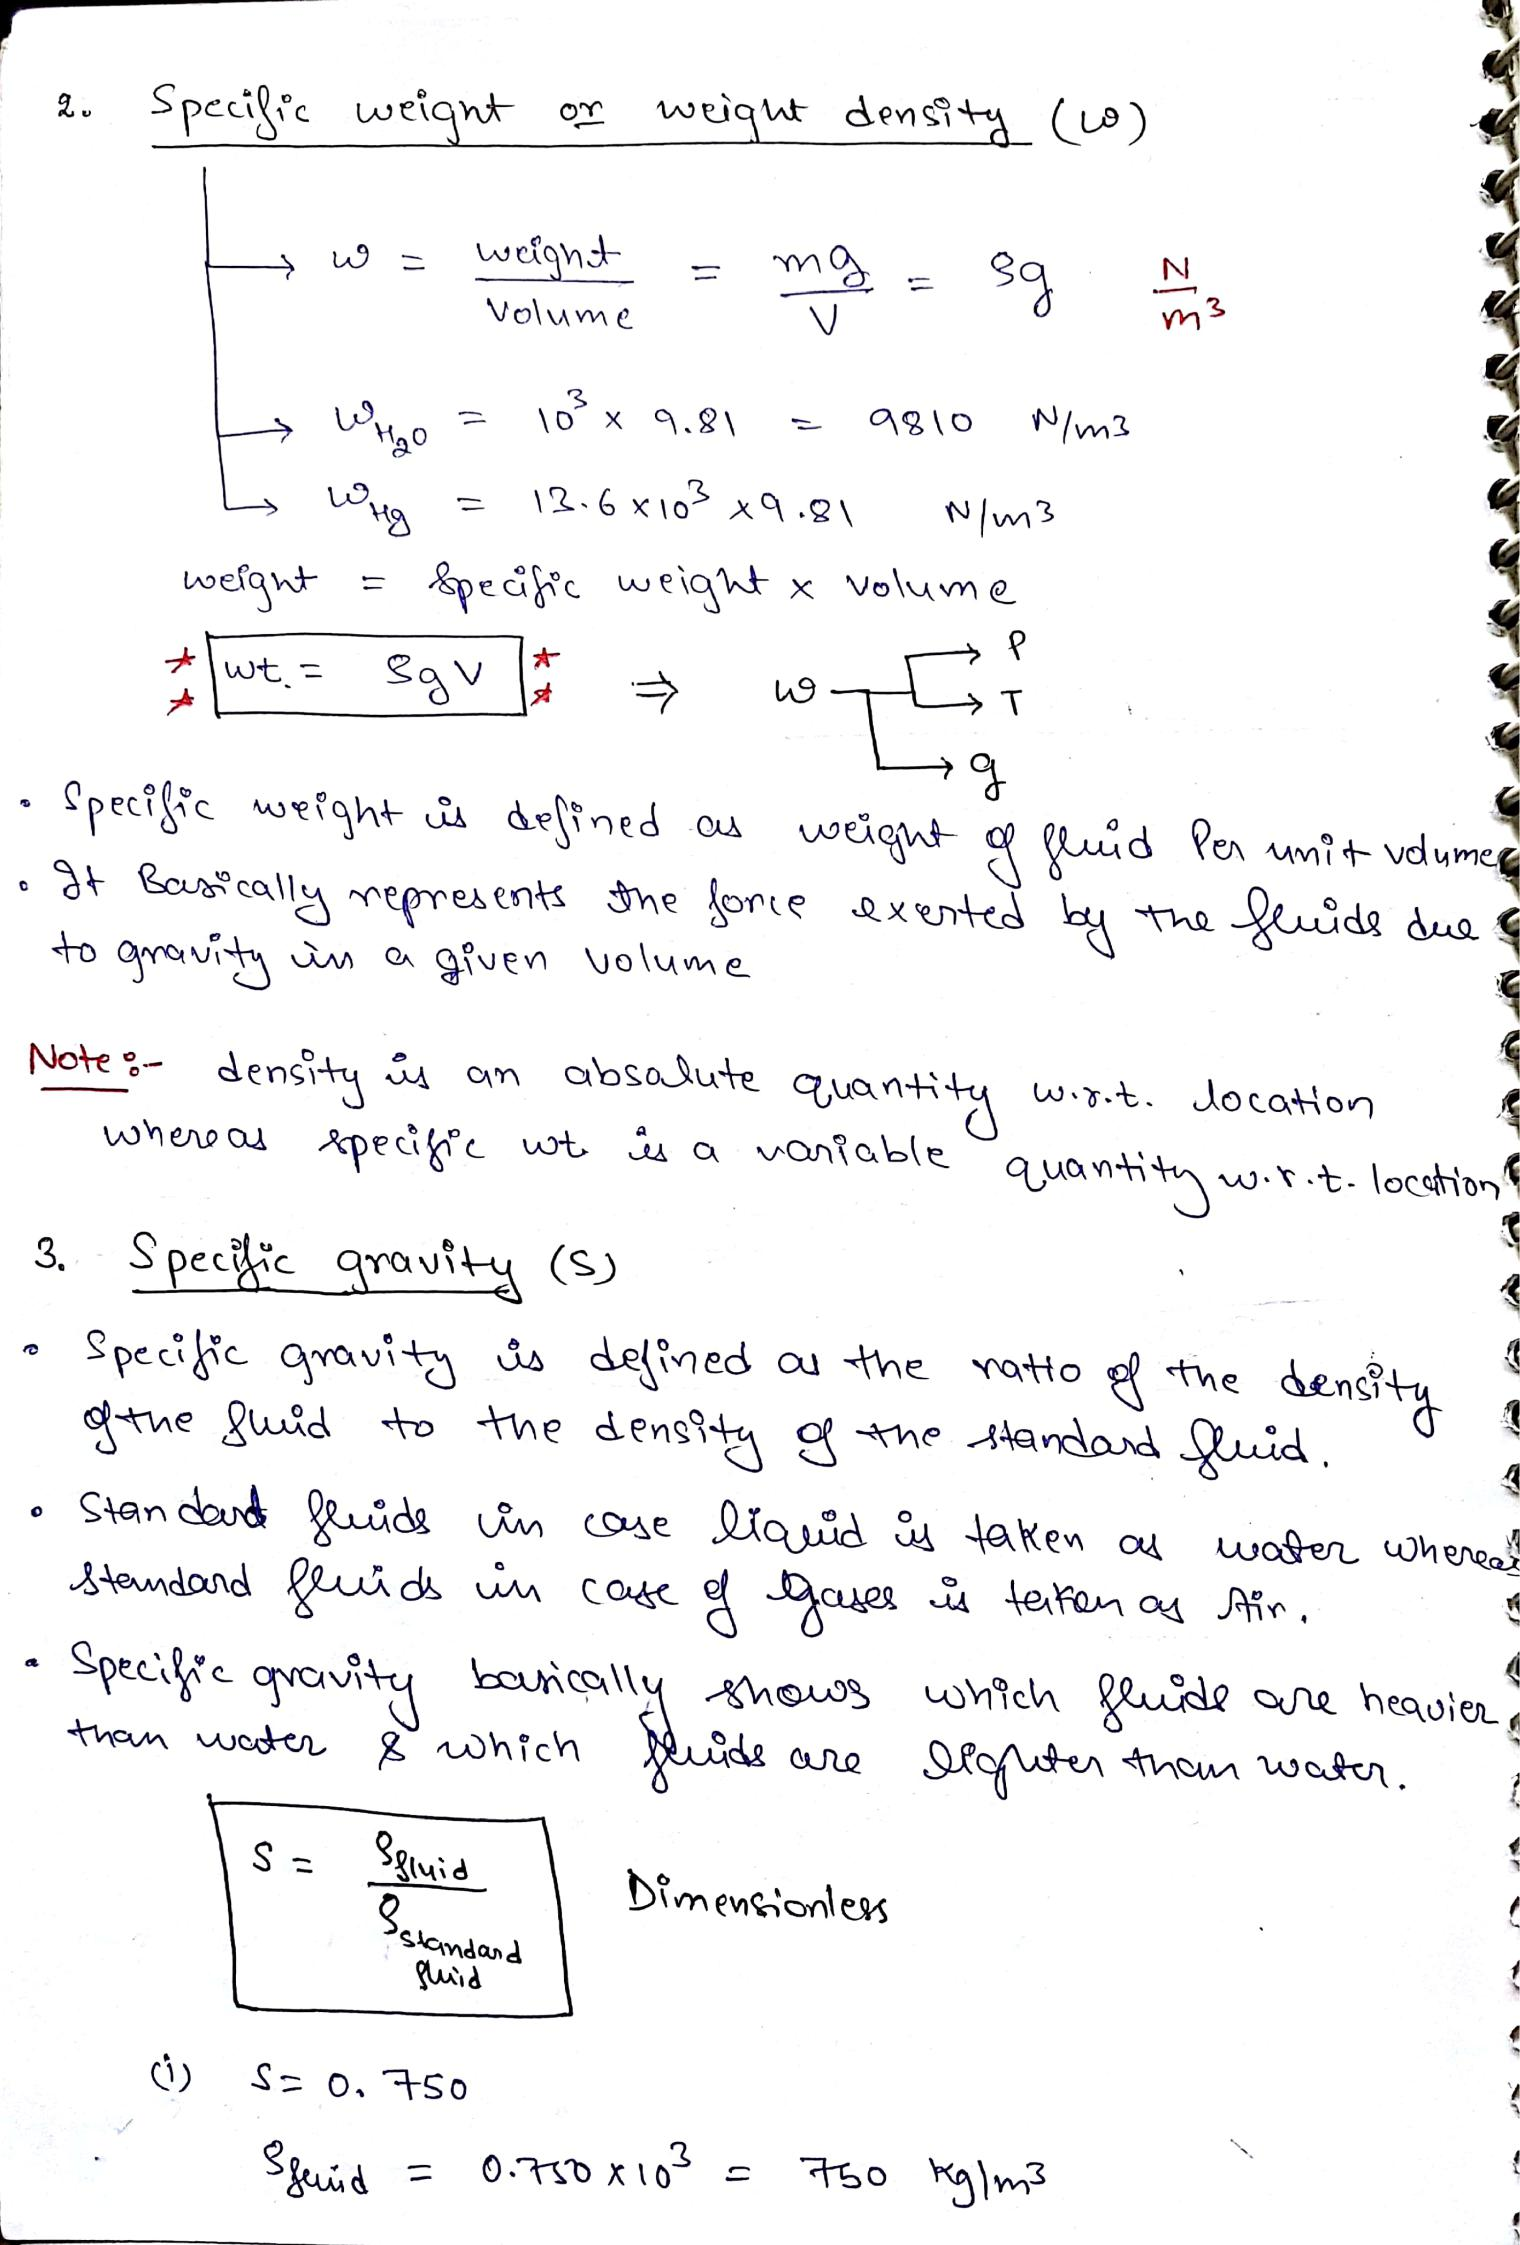 2. Specific weight or weight density (w)
w = weight / Volume = mg / V = ρg N / m³
w_H₂O = 10³ × 9.81 = 9810 N/m3
w_Hg = 13.6 × 10³ × 9.81 N/m3
weight = specific weight × volume
wt. = ρgV ⇒ w → P
→ T
→ g
• Specific weight is defined as weight of fluid Per unit volume
• It Basically represents the force exerted by the fluids due
to gravity in a given volume
Note :- density is an absolute quantity w.r.t. location
whereas specific wt is a variable quantity w.r.t. location
3. Specific gravity (S)
• Specific gravity is defined as the ratio of the density
of the fluid to the density of the standard fluid.
• Standard fluids in case liquid is taken as water whereas
standard fluids in case of gases is taken as Air.
• Specific gravity basically shows which fluids are heavier
than water & which fluids are lighter than water.
S = ρfluid / ρstandard fluid Dimensionless
(i) S = 0.750
ρfluid = 0.750 × 10³ = 750 kg/m3